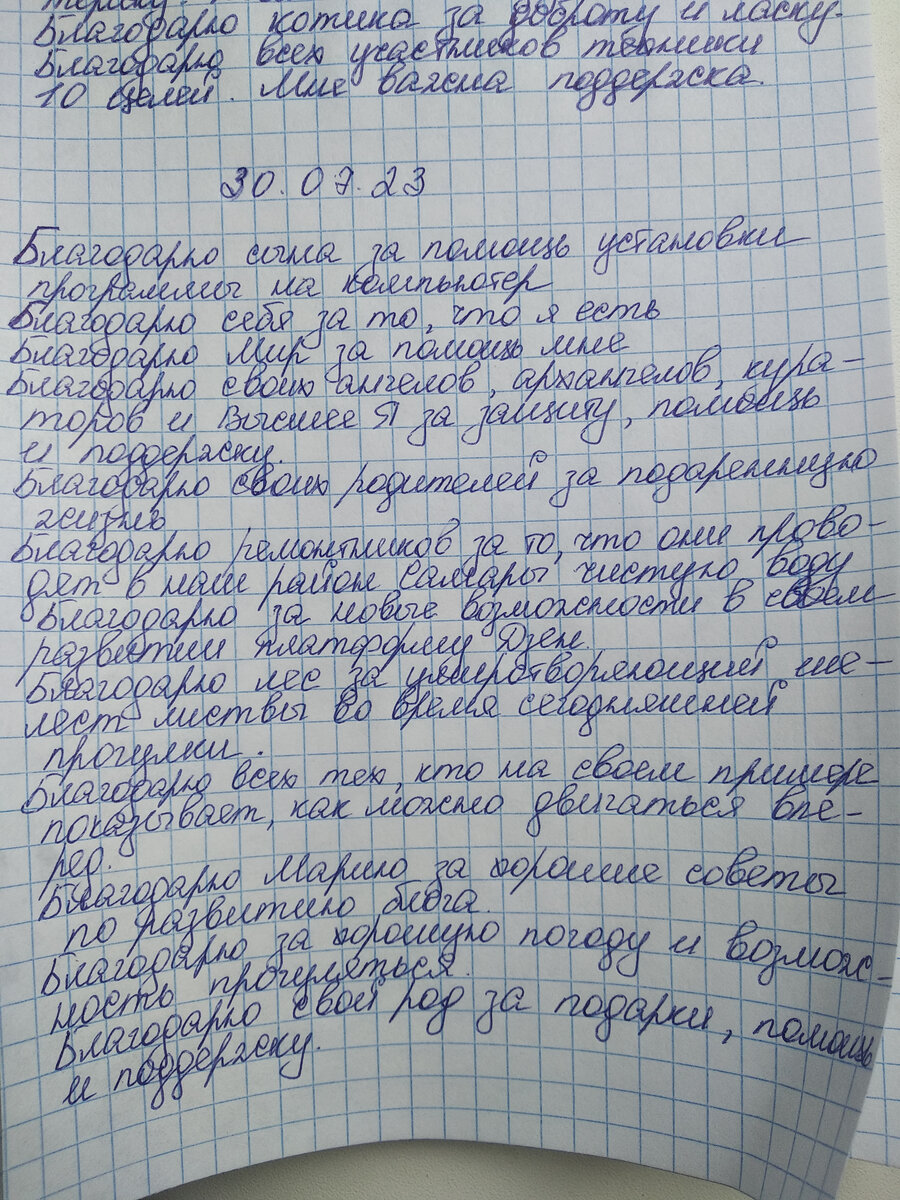 Благодарю котика за доброту и ласку.
Благодарю всех участников техники
10 целей. Мне важна поддержка.
30.07.23
Благодарю сына за помощь установки
программы на компьютер
Благодарю себя за то, что я есть
Благодарю Мир за помощь мне
Благодарю своих ангелов, архангелов, кура-
торов и Высшее Я за защиту, помощь
и поддержку.
Благодарю своих родителей за подаренную
жизнь
Благодарю ремонтников за то, что они прово-
дят в наш район Самары чистую воду
Благодарю за новые возможности в своем
развитии платформу Дзен.
Благодарю лес за умиротворяющий ше-
лест листвы во время сегодняшней
прогулки.
Благодарю всех тех, кто на своем примере
показывает, как можно двигаться впе-
ред.
Благодарю Марину за хорошие советы
по развитию блога.
Благодарю за хорошую погоду и возмож-
ность прогуляться.
Благодарю свой род за подарки, помощь
и поддержку.